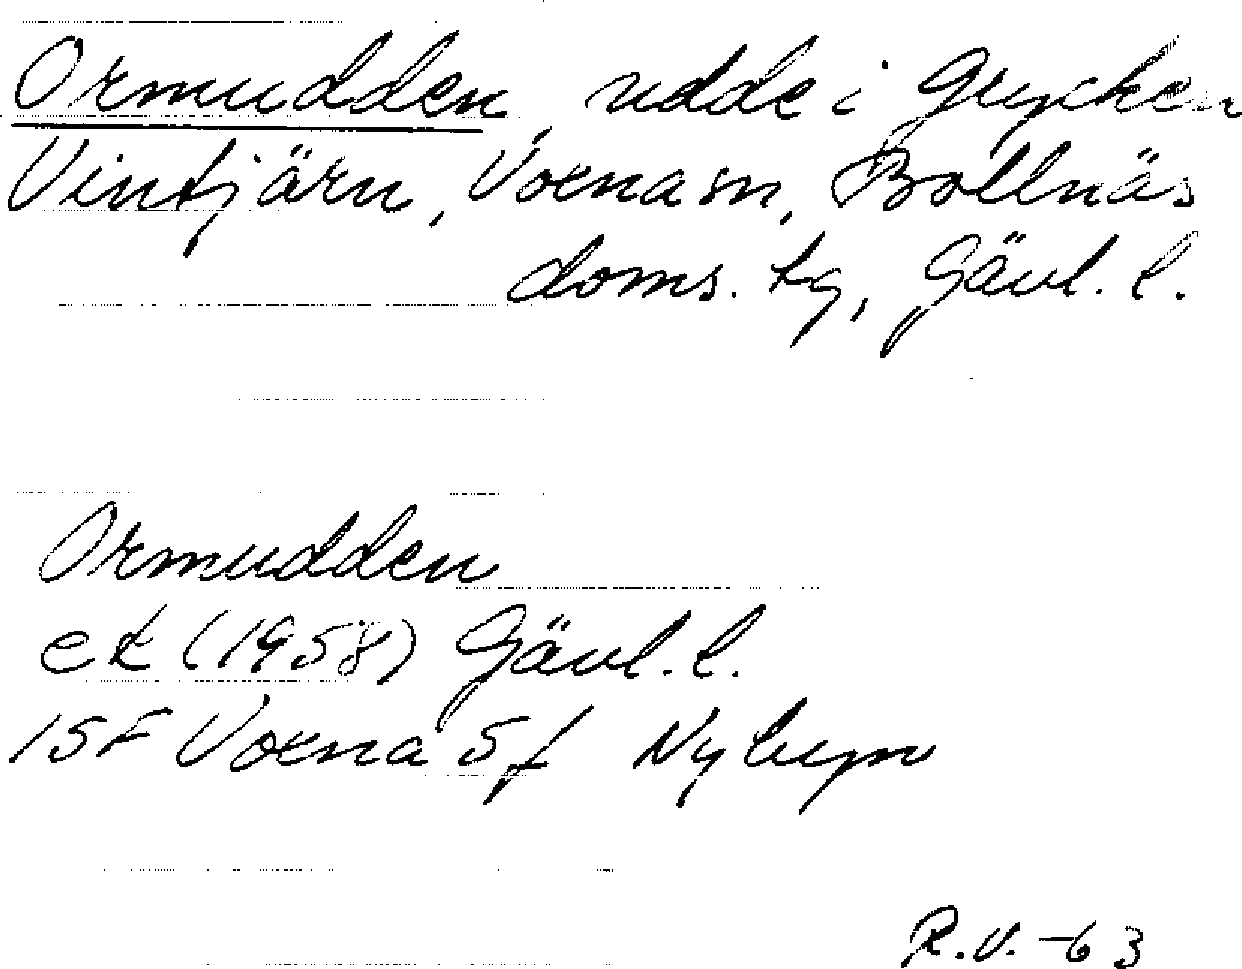 Ormudden, udde i Grycken
Vintjärn, Voxna sn, Bollnäs
doms. tg, Gävl. l.
Ormudden
ek (1958) Gävl. l.
15F Voxna 5f Nybyn
R.V. -63